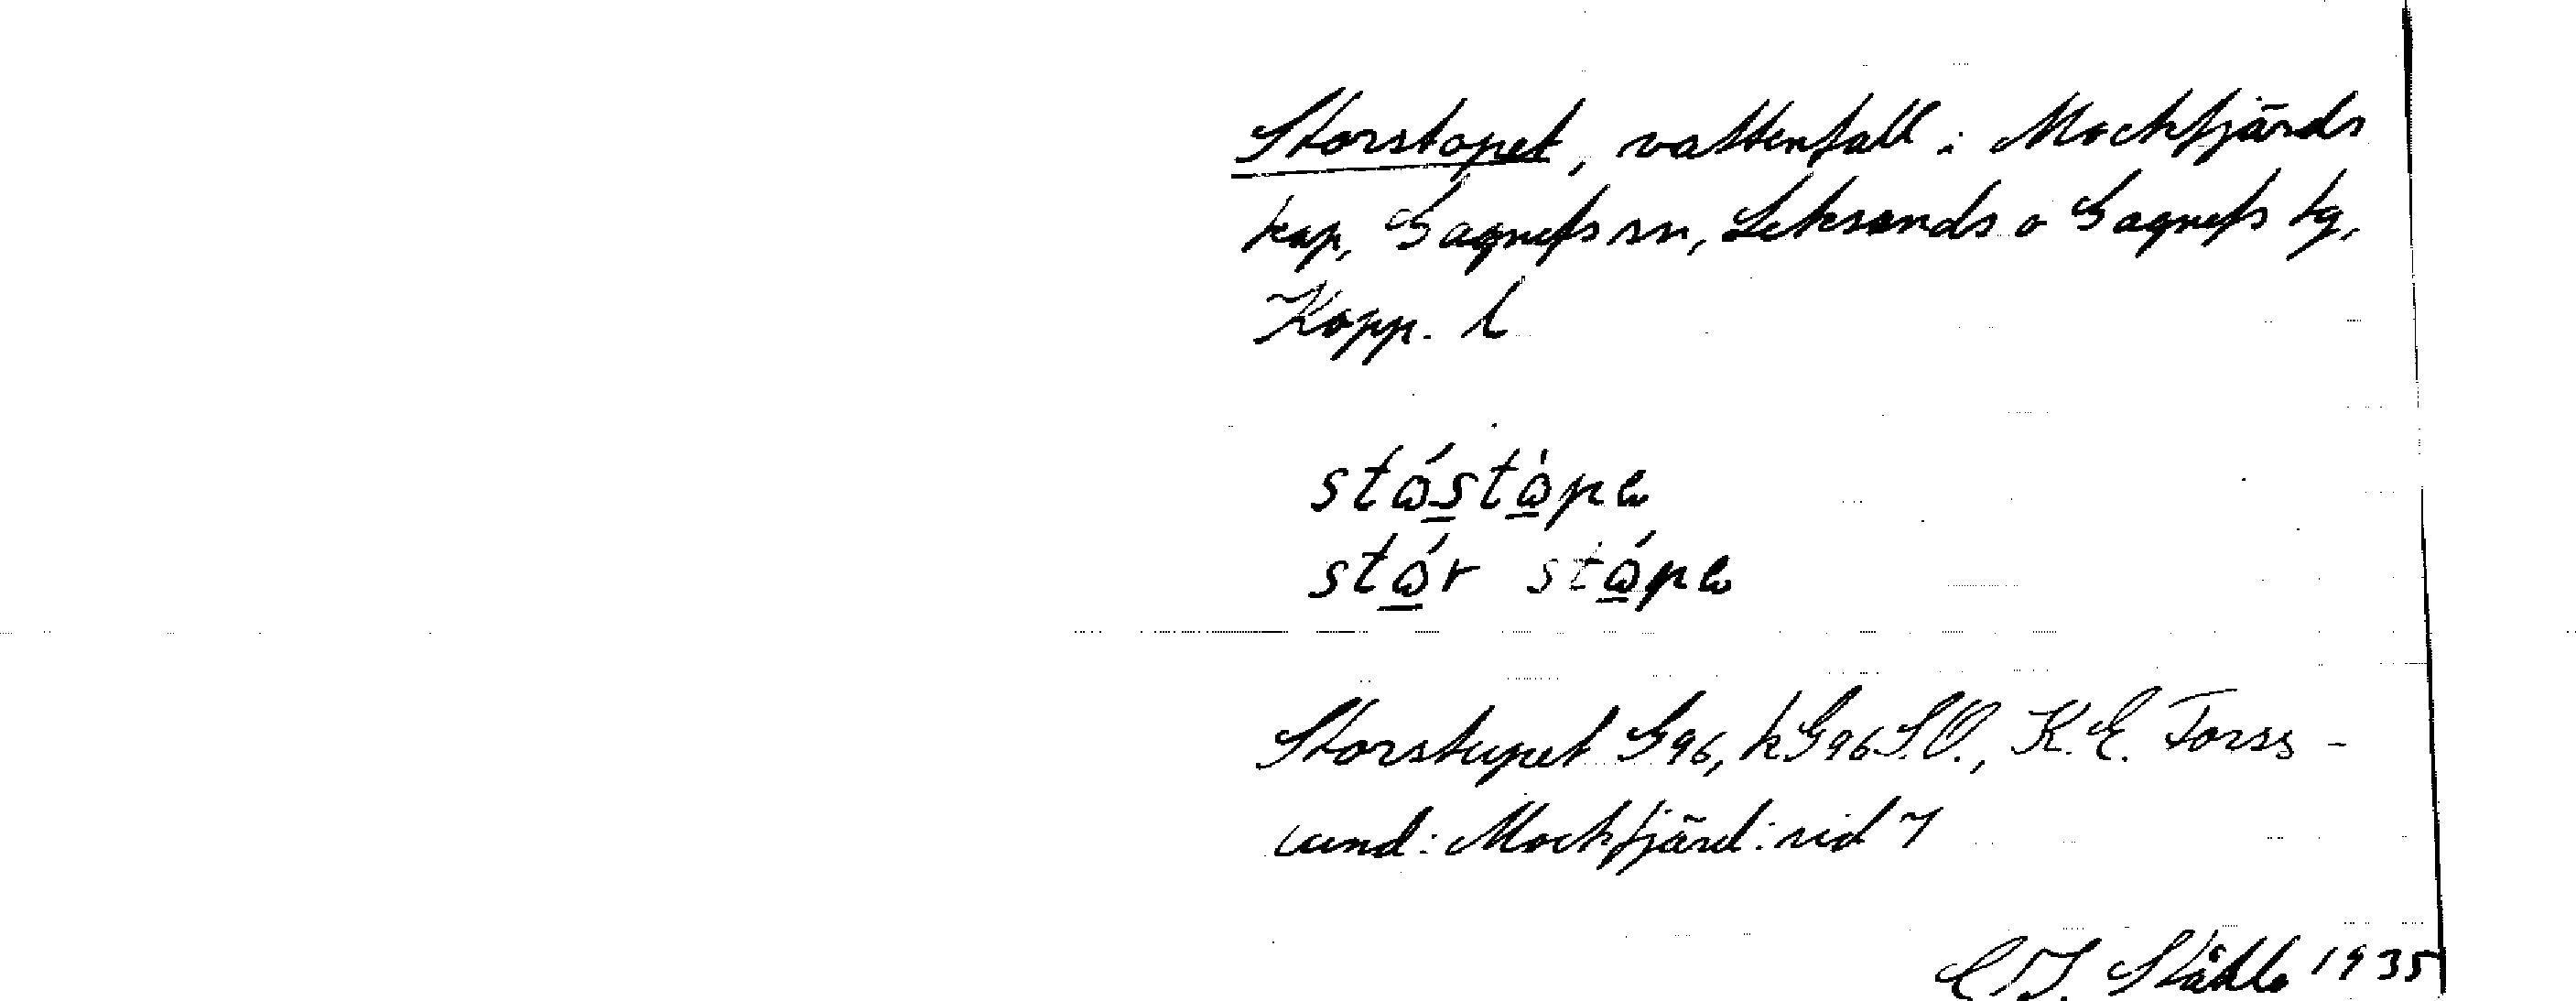 Storstopet, vattenfall i Mockfjärds
kap, Gagnefs sn, Leksands o Gagnefs tg,
Kopp. l
stóstòpe
stór stópe
Storstupet G96, kG96S.O., K. E. Forss-
lund: Mockfjärd: sid 7
C I Ståhle 1935